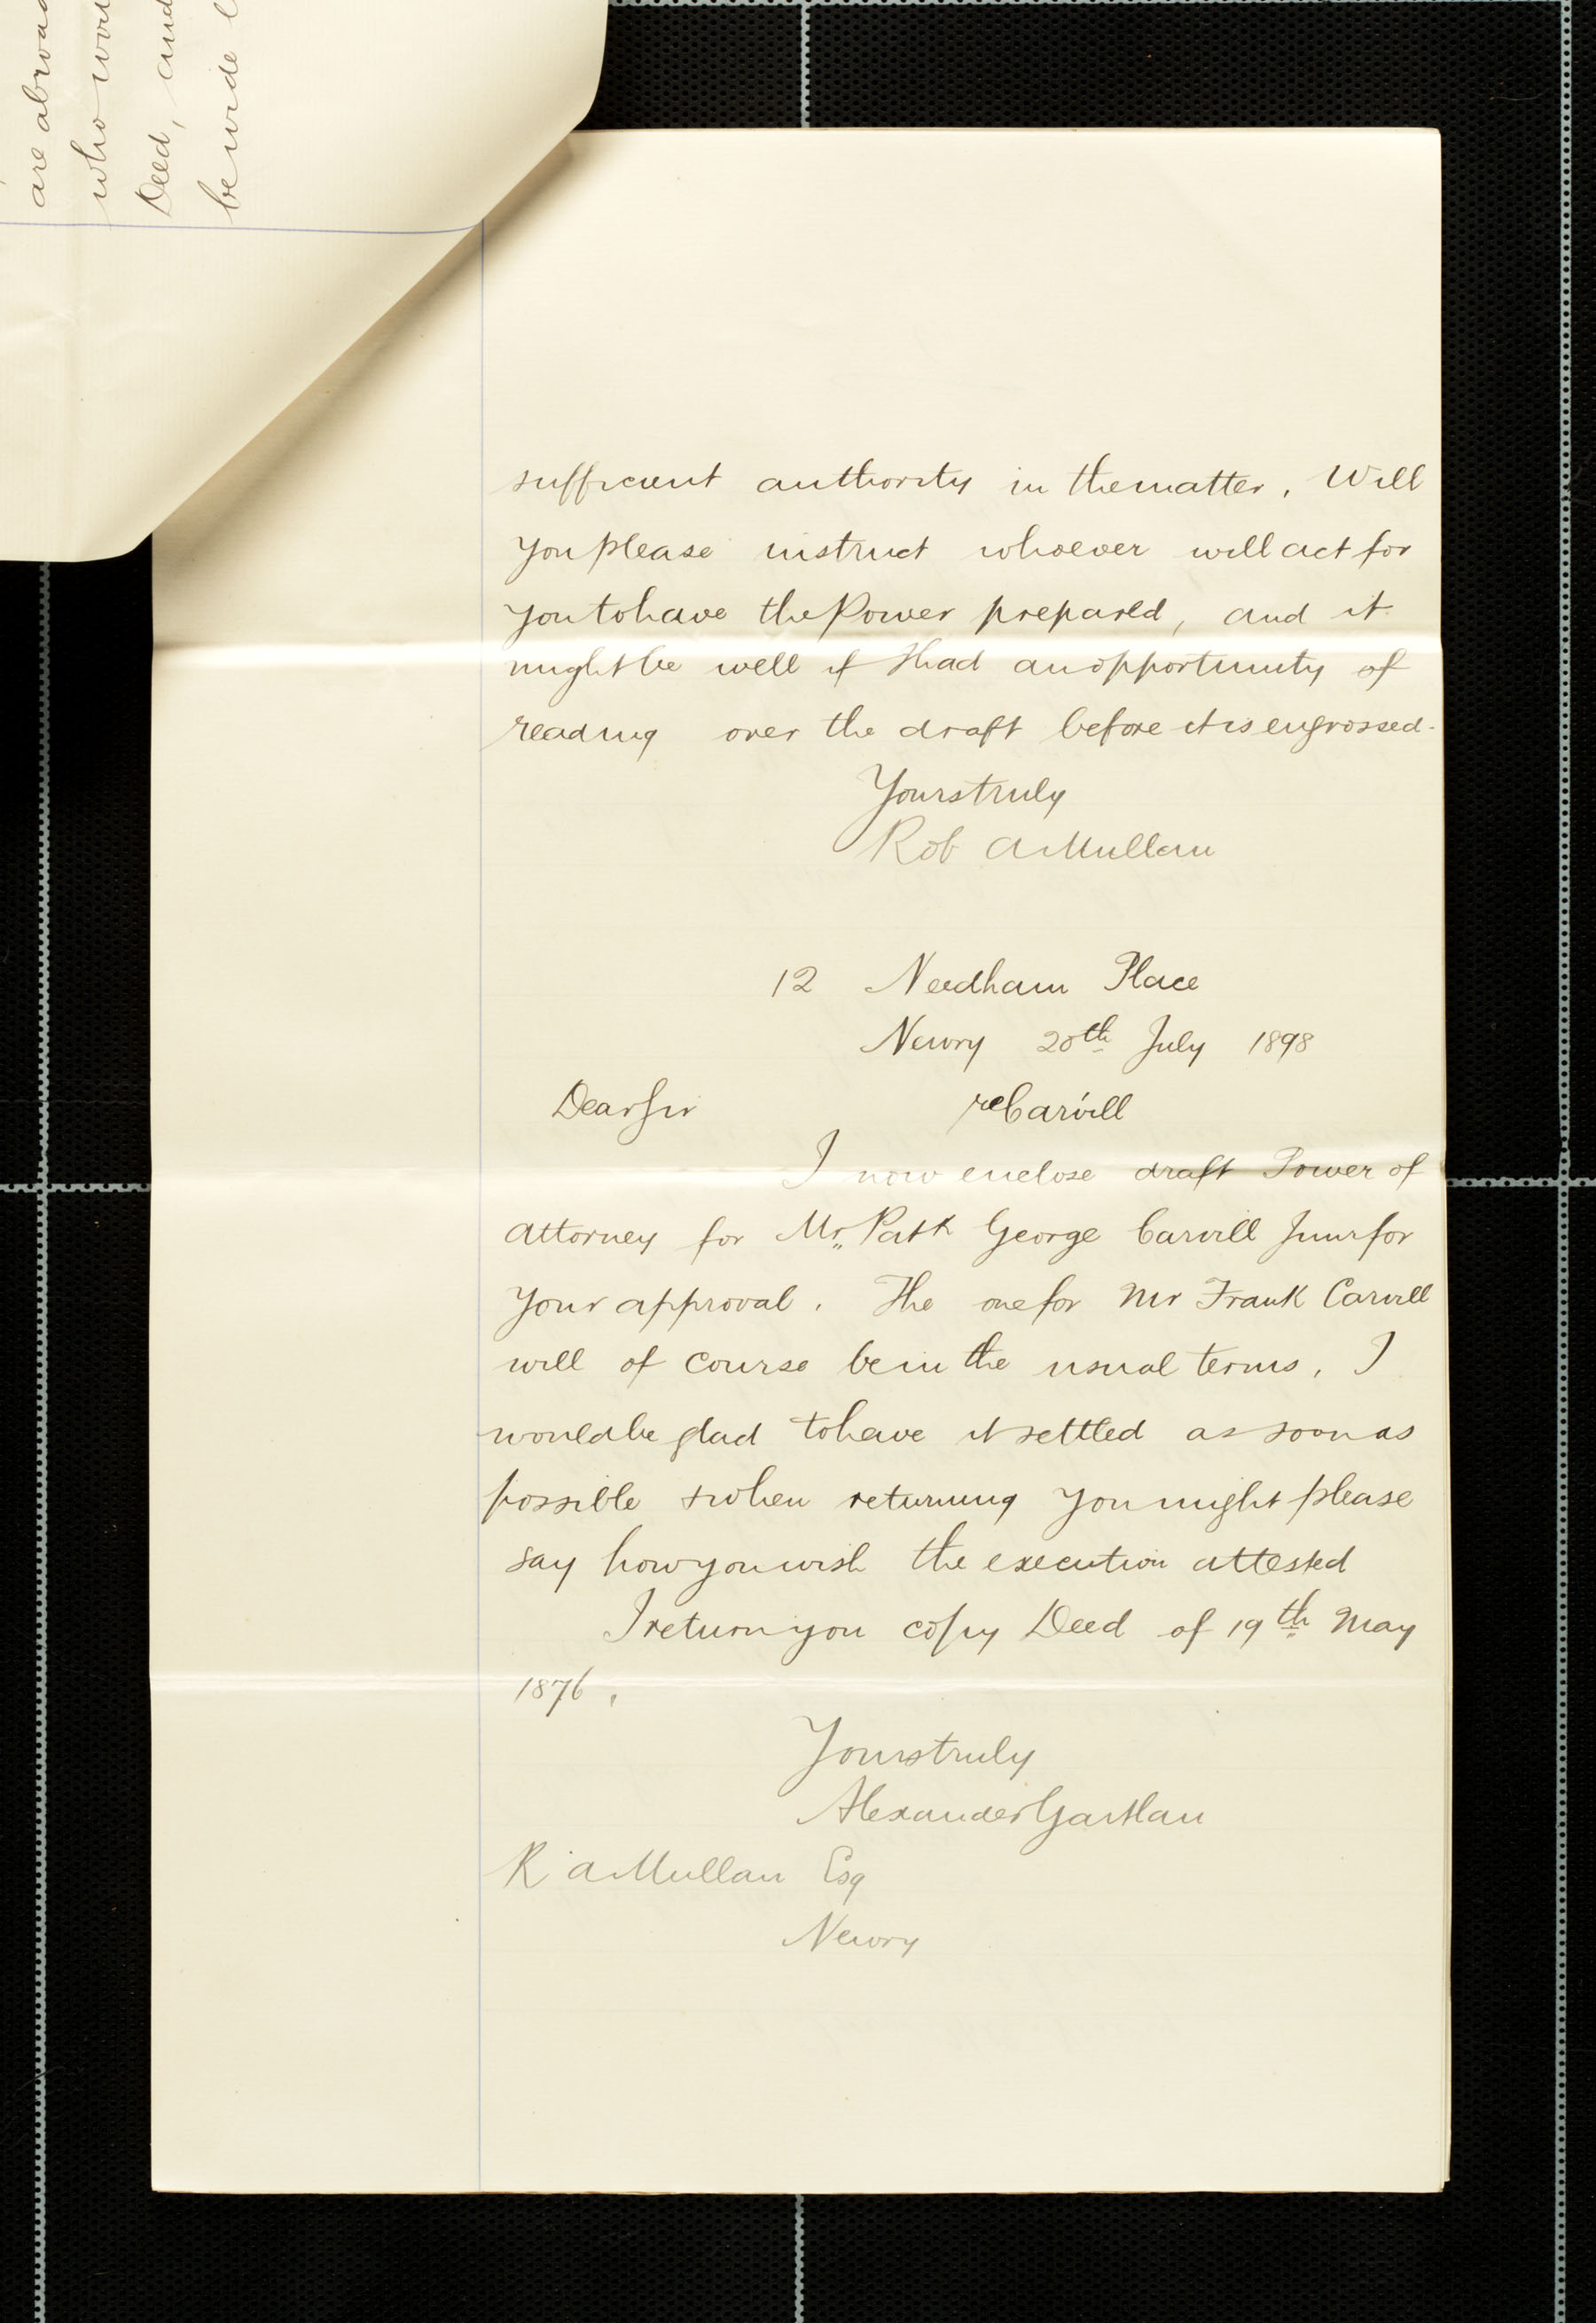 are abroad
who wou
Deed, and
be wide
sufficient authority in the matter. Will
you please instruct whoever will act for
you to have the Power prepared, and it
might be well if I had an opportunity of
reading over the draft before it is engrossed.
Yours truly
Rob A Mullan
12 Needham Place
Newry 20th July 1898
Dear Sir re Carvill
I now enclose draft Power of
Attorney for Mr. Patk George Carvill Junr for
your approval. The one for Mr Frank Carvill
will of course be in the usual terms. I
would be glad to have it settled as soon as
possible & when returning you might please
say how you wish the execution attested
I return you copy Deed of 19th May
1876.
Yours truly
Alexander Gartlan
R A Mullan Esq
Newry